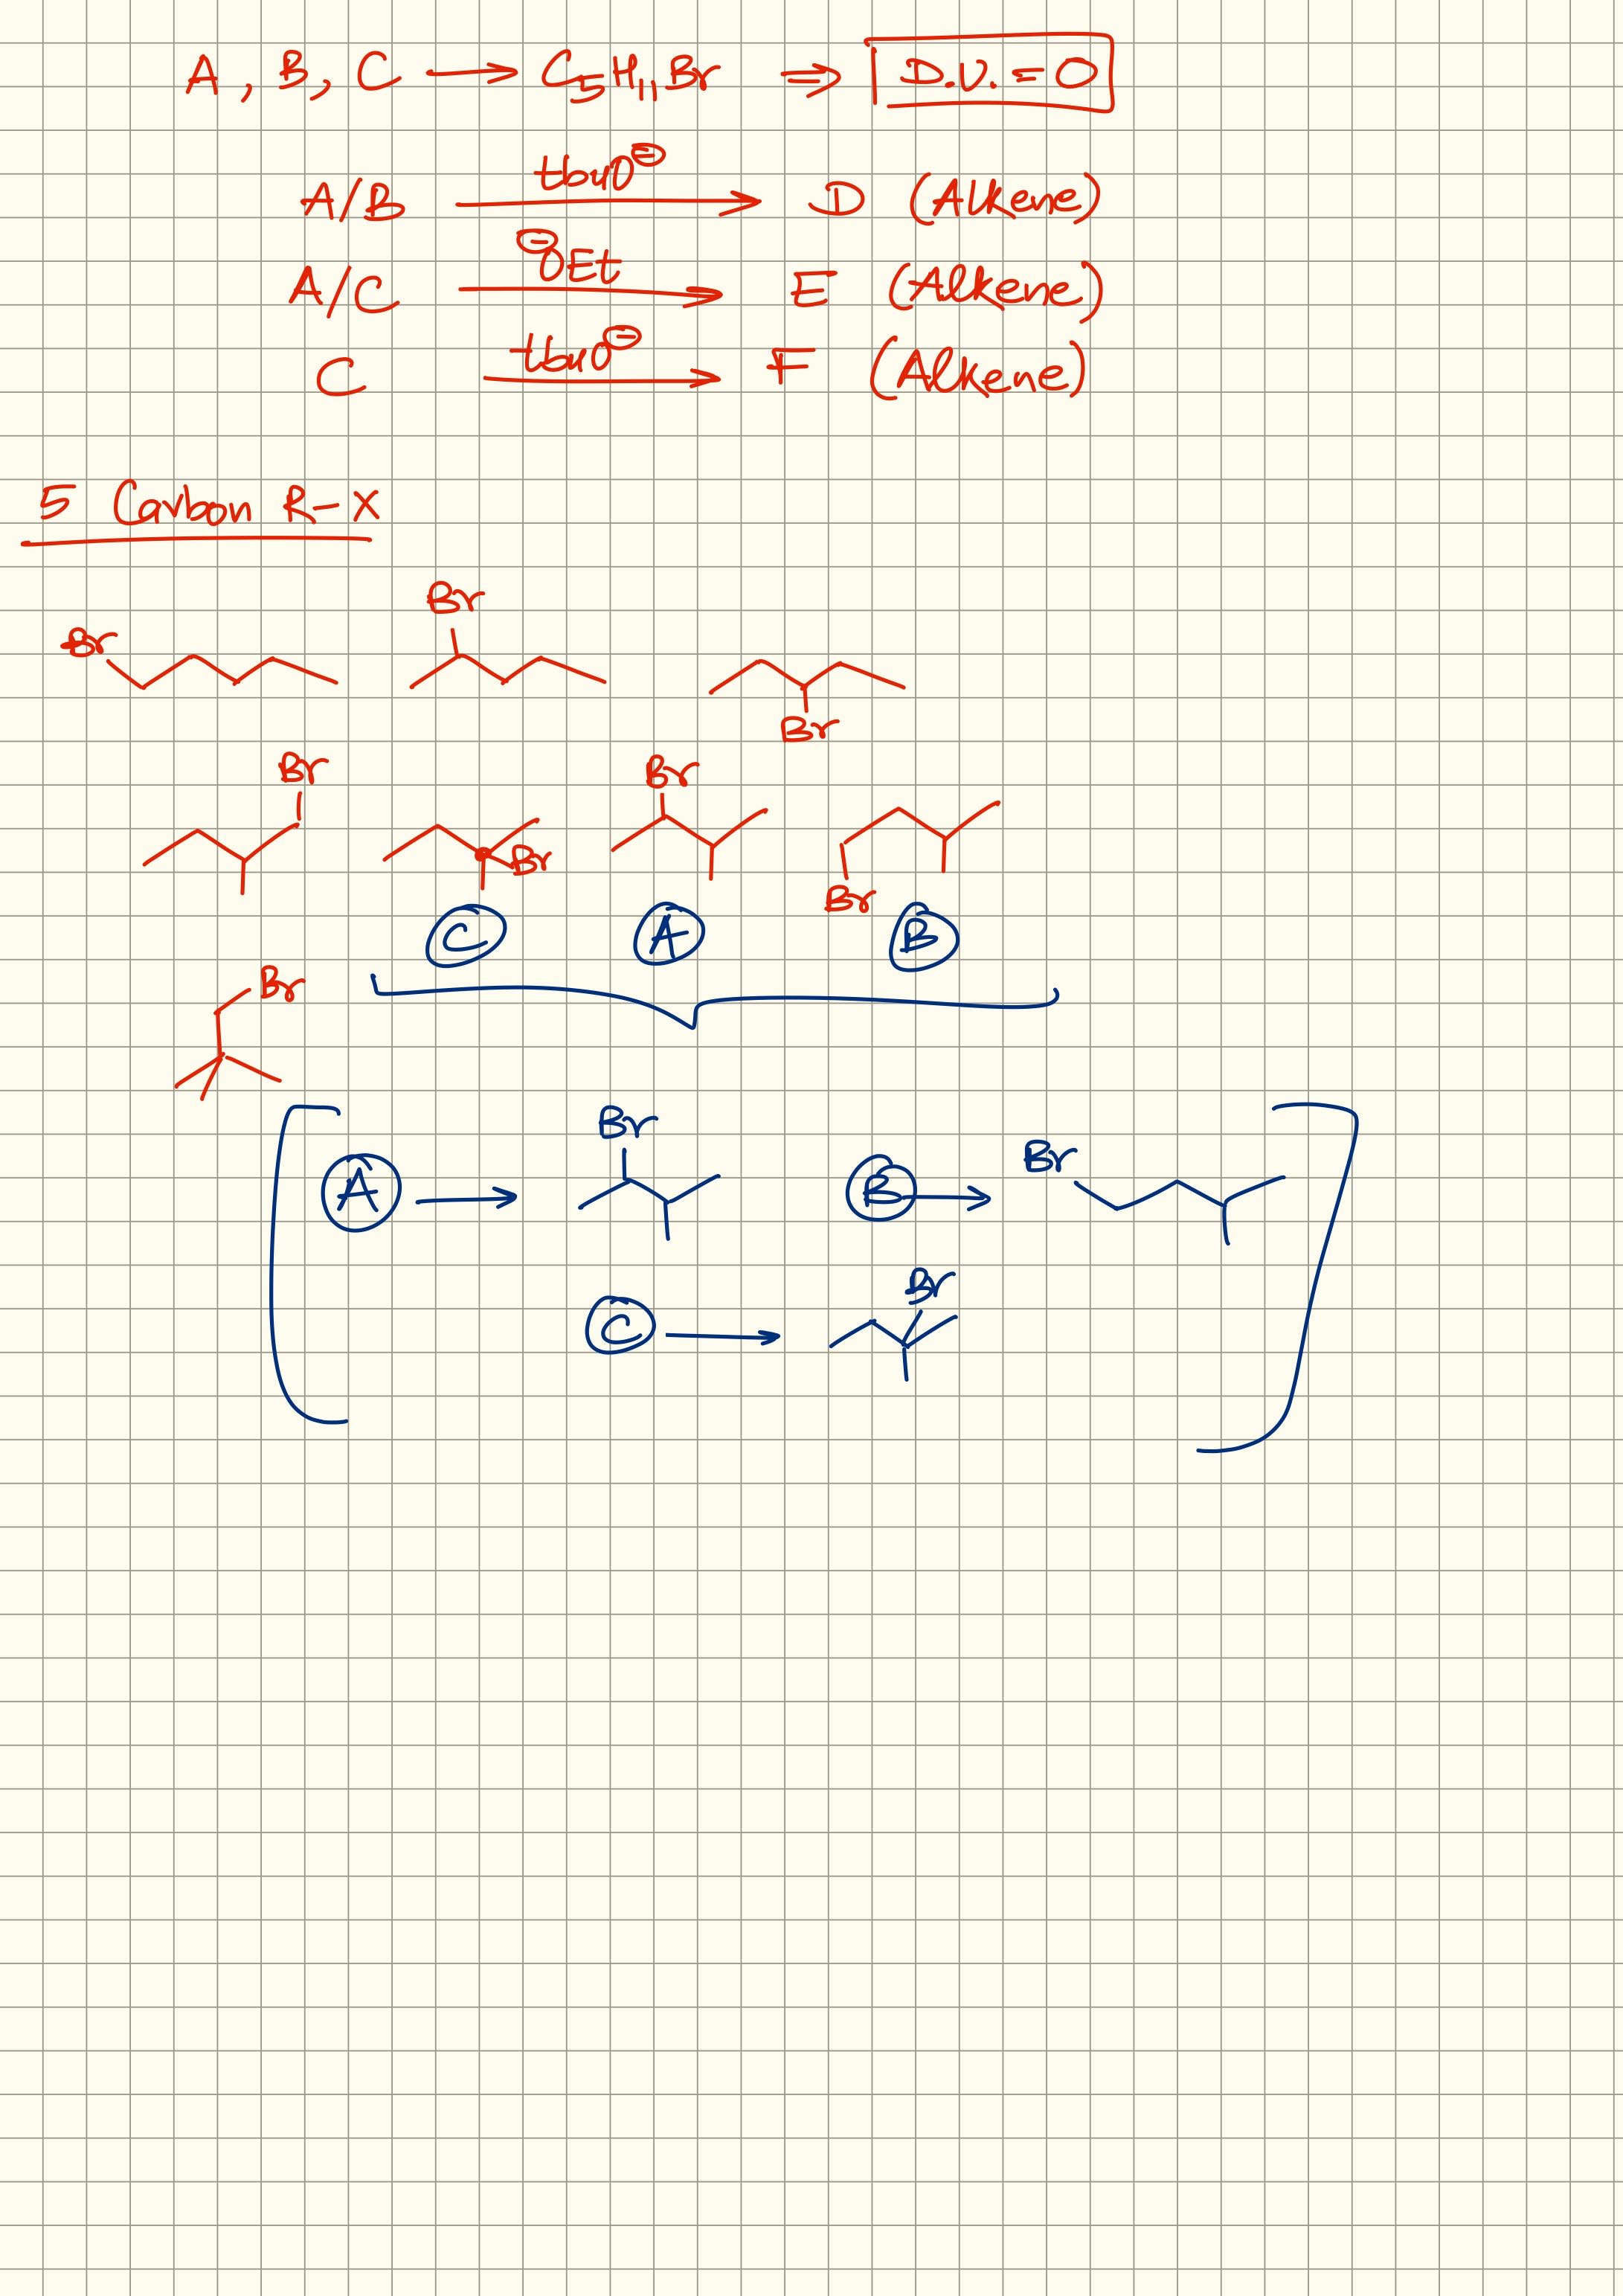 A, B, C → C5H11Br ⇒ D.U. = 0
A/B tbuO⊖ → D (Alkene)
A/C ⊖OEt → E (Alkene)
C tbuO⊖ → F (Alkene)
5 Carbon R-X
Br
Br
Br
Br
Br
Br
Br
C A B
Br
Br
Br
A → B →
Br
C →